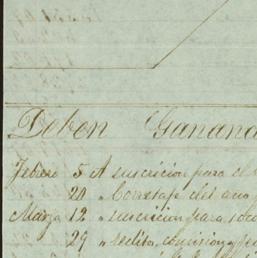 Deben Ganan
Febrero 5 A suscricion para el
20 " Corretaje del año
Marzo 12 " suscricion para
29 " reditos, comision y